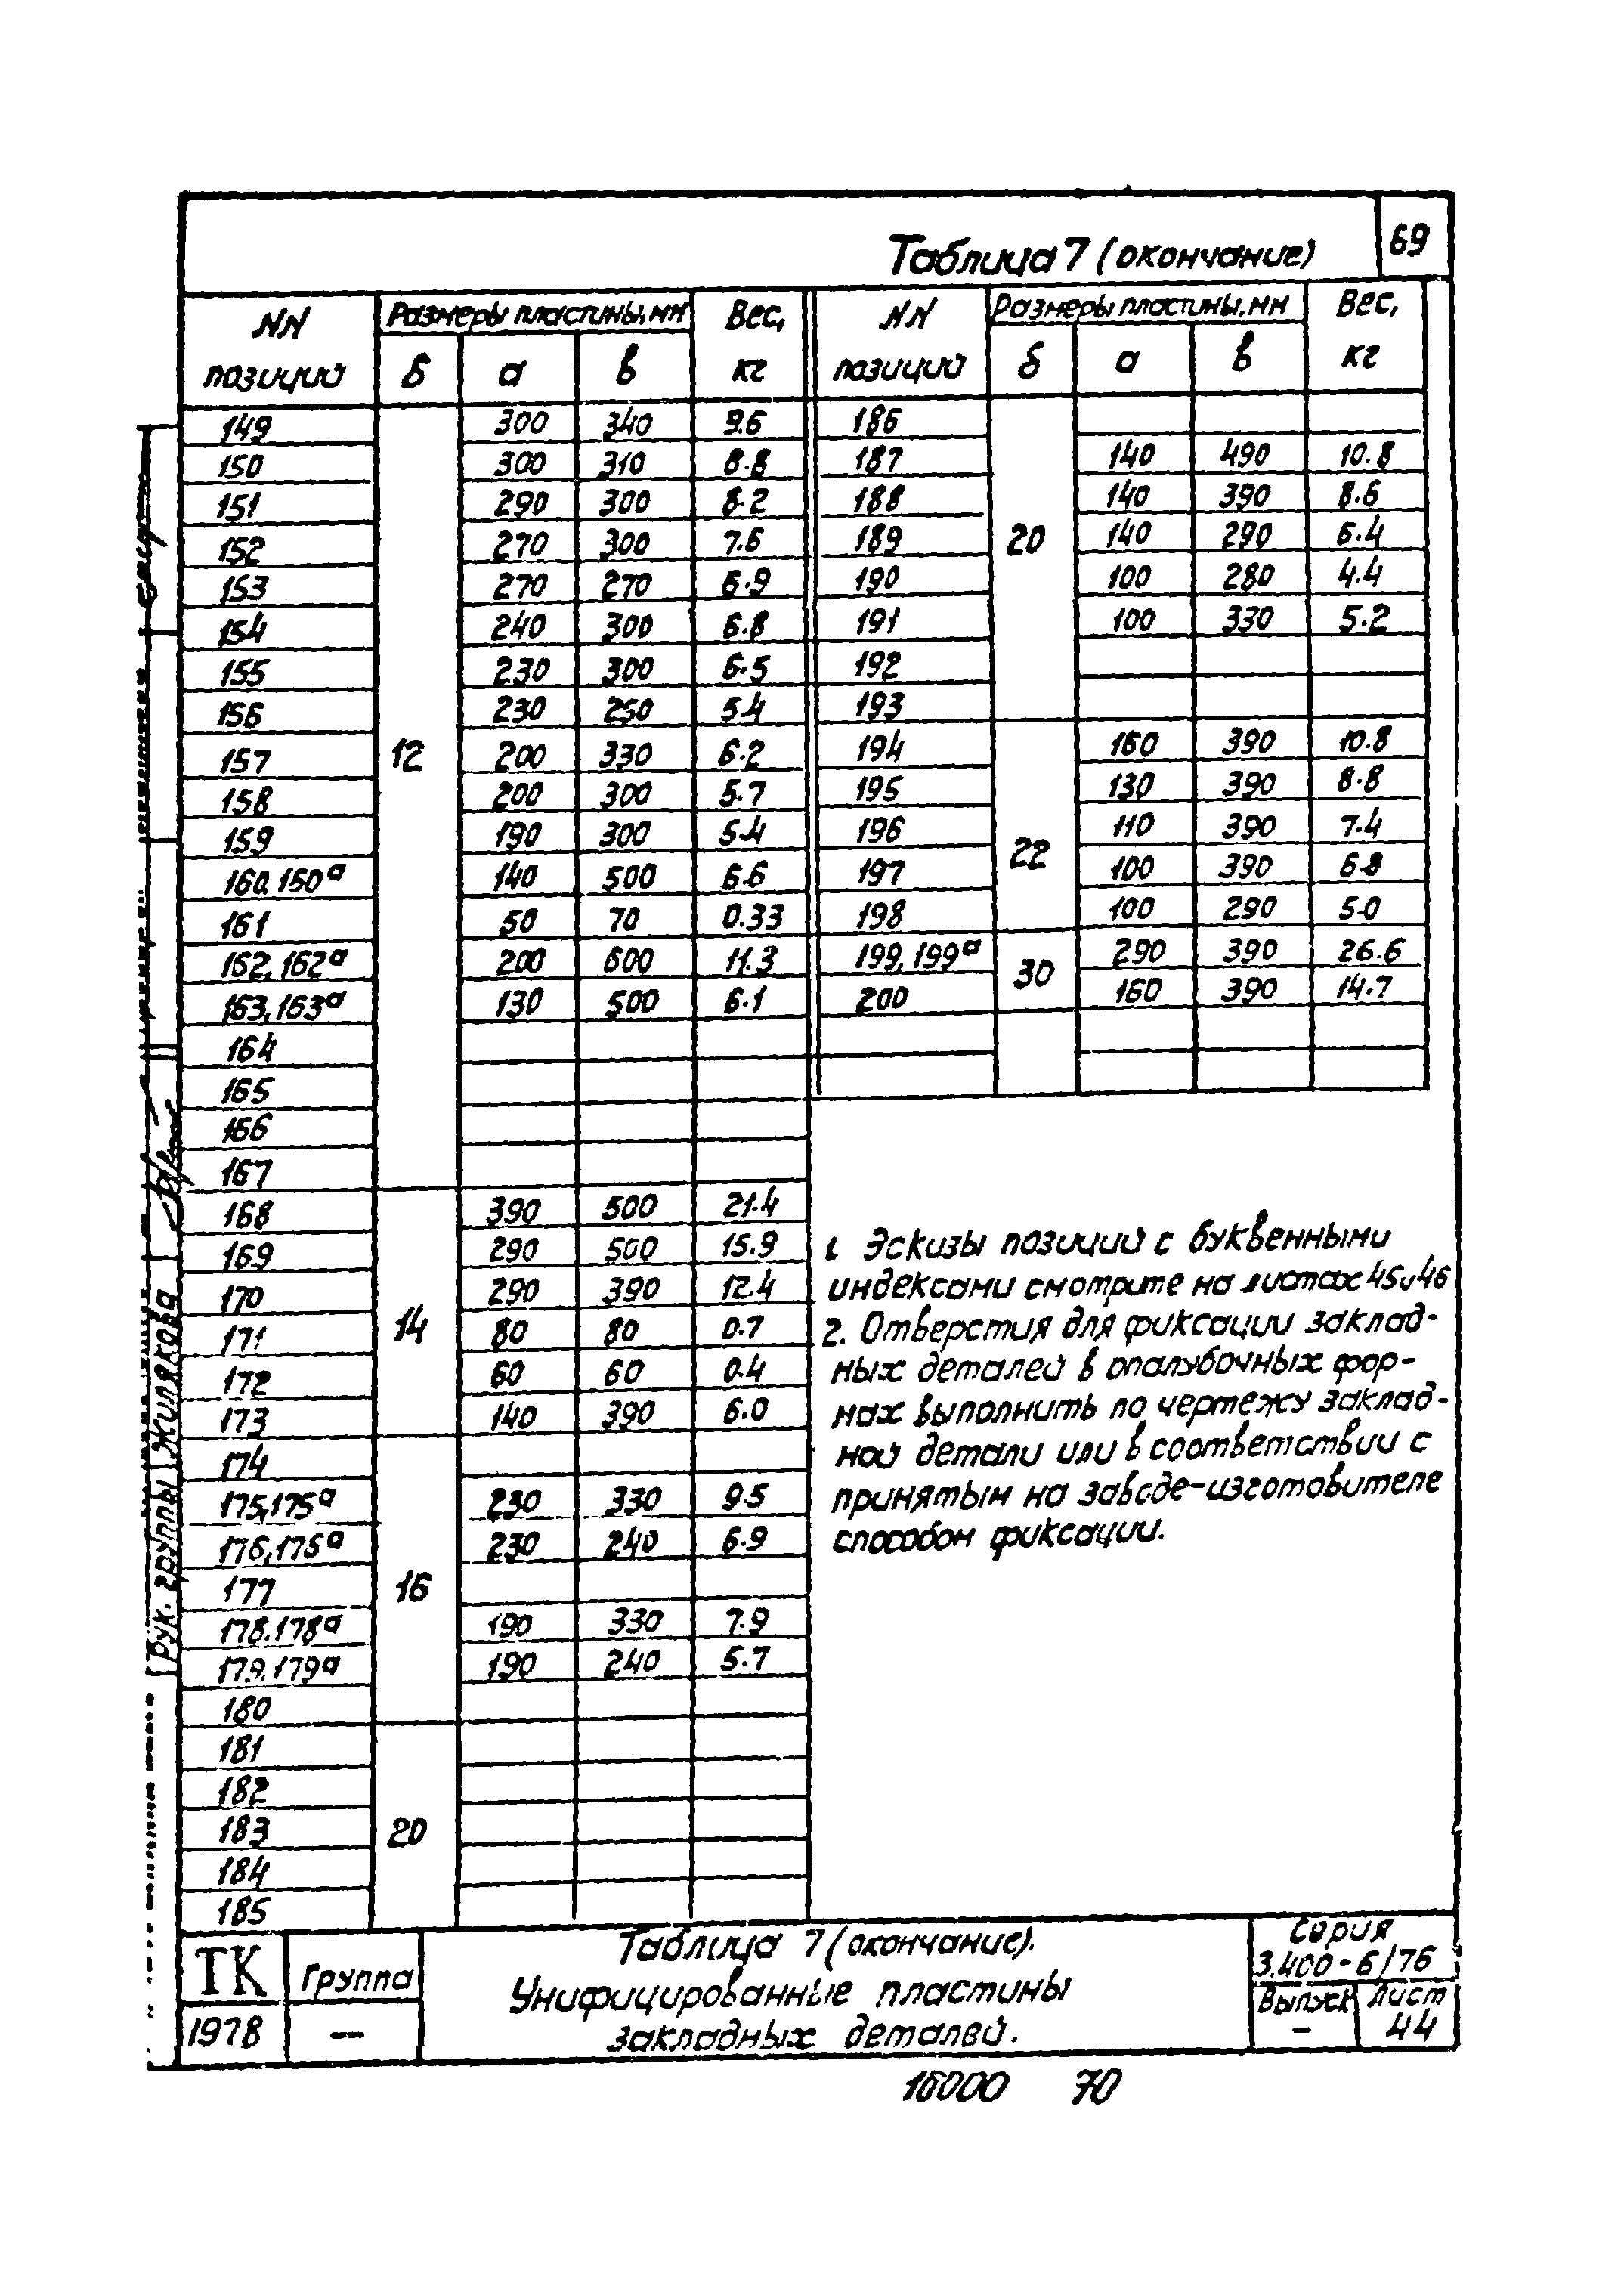 69
Таблица 7 (окончание)
NN позиций Размеры пластины, мм Вес, кг NN позиций Размеры пластины, мм Вес, кг
δ а в δ а в
149 300 340 9.6 186
150 300 310 8.8 187 140 490 10.8
151 290 300 8.2 188 140 390 8.6
152 270 300 7.6 189 20 140 290 6.4
153 270 270 6.9 190 100 280 4.4
154 240 300 6.8 191 100 330 5.2
155 230 300 6.5 192
156 230 250 5.4 193
157 12 200 330 6.2 194 160 390 10.8
158 200 300 5.7 195 130 390 8.8
159 190 300 5.4 196 110 390 7.4
160.150а 140 500 6.6 197 22 100 390 6.8
161 50 70 0.33 198 100 290 5.0
162, 162а 200 600 11.3 199, 199а 290 390 26.6
163, 163а 130 500 6.1 200 30 160 390 14.7
164
165
166
167
168 390 500 21.4
169 290 500 15.9
170 290 390 12.4
171 14 80 80 0.7
172 60 60 0.4
173 140 390 6.0
174
175, 175а 230 330 9.5
176, 175а 230 240 6.9
177 16
178.178а 190 330 7.9
179.179а 190 240 5.7
180
181
182
183 20
184
185
1. Эскизы позиций с буквенными
индексами смотрите на листах 45 и 46
2. Отверстия для фиксации заклад-
ных деталей в опалубочных фор-
мах выполнить по чертежу заклад-
ной детали или в соответствии с
принятым на заводе-изготовителе
способом фиксации.
Рук. группы Жилякова
ТК Группа
1978 —
Таблица 7 (окончание).
Унифицированные пластины
закладных деталей.
Серия
3.400-6/76
Выпуск Лист
— 44
16000 70